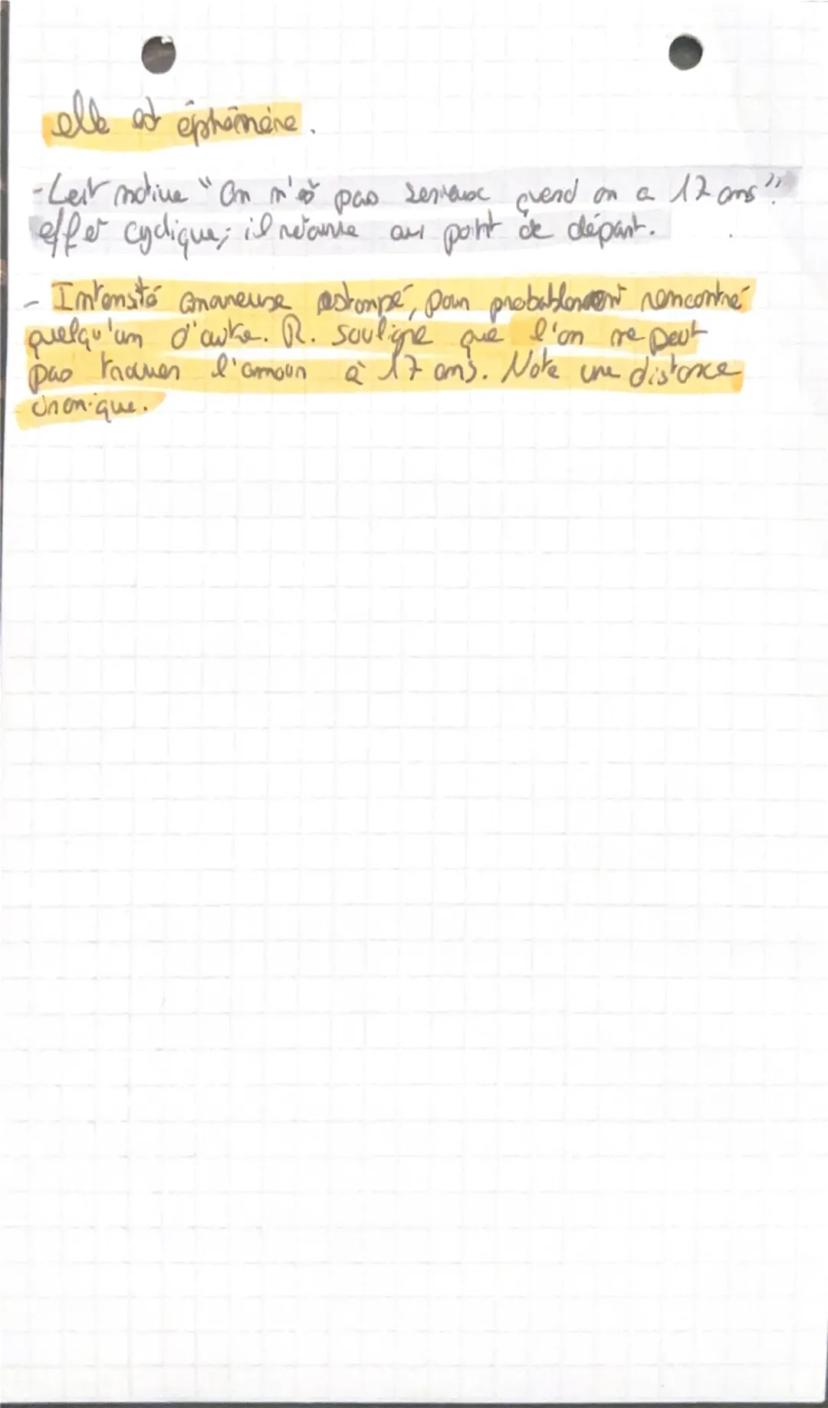 elle est éphémère.
- Leit motive "On n'est pas serieux quend on a 17 ans".
effet cyclique; il retourne au point de départ.
- Intensité amoureuse estompé, pour probablement rencontré
quelqu'un d'autre. R. souligne que l'on ne peut
pas trouver l'amour à 17 ans. Note une distance
ironique.